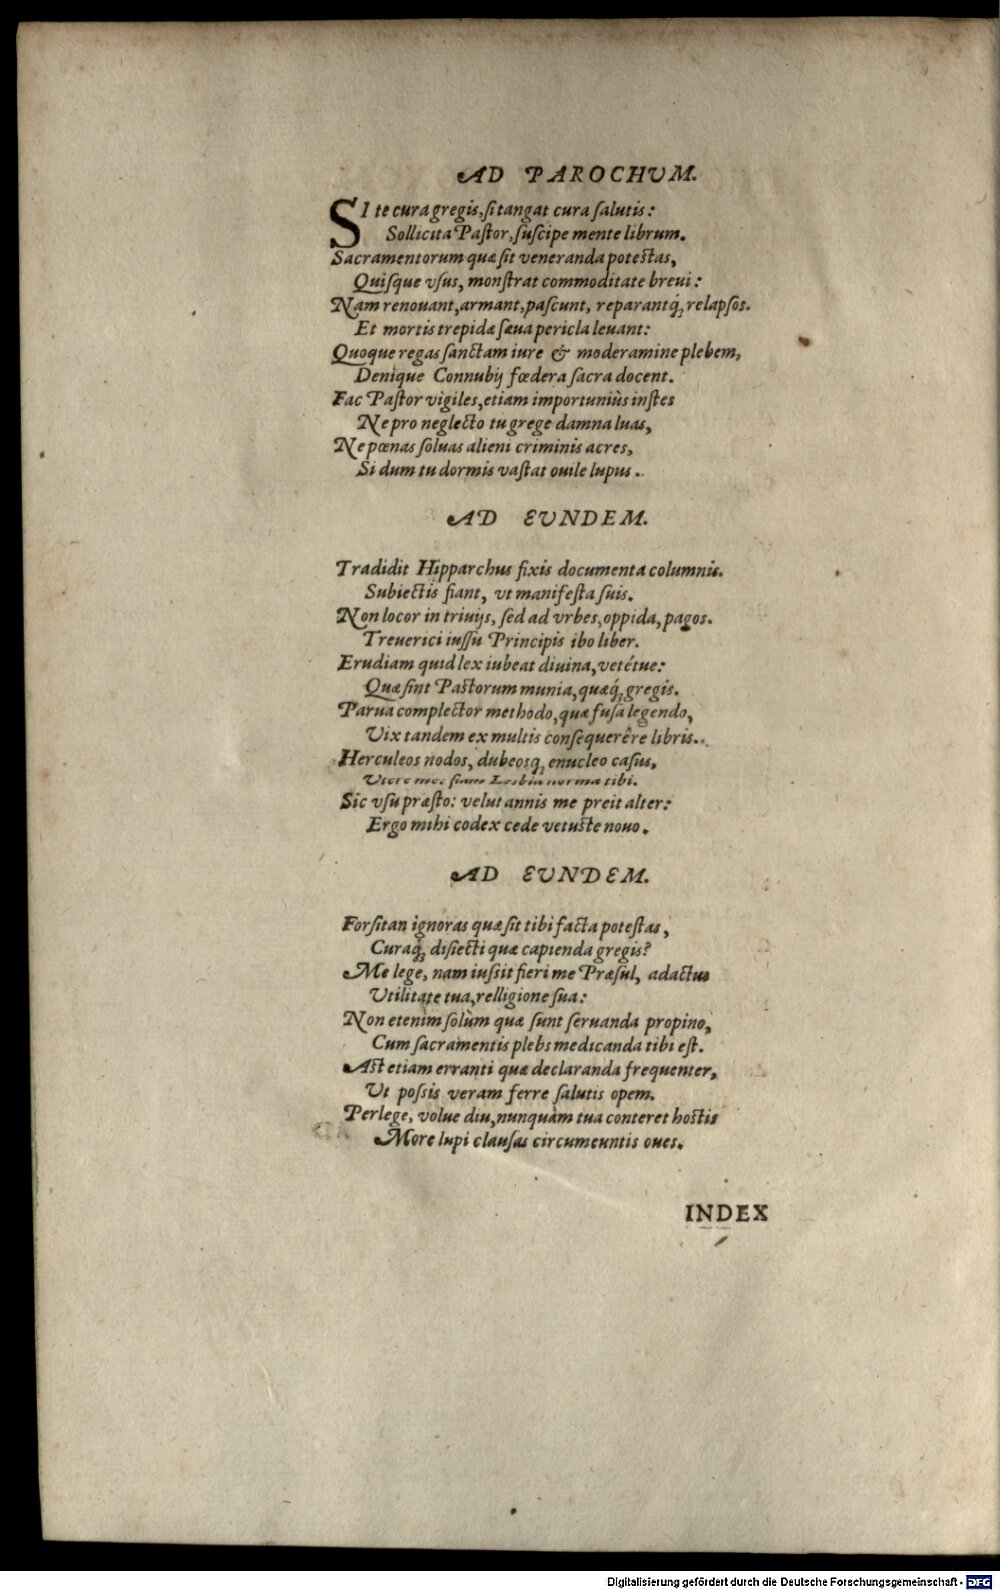 AD PAROCHVM.
SI te cura gregis, ſi tangat cura ſalutis:
Sollicita Paſtor, ſuſcipe mente librum.
Sacramentorum quæ ſit veneranda poteſtas,
Quiſque vſus, monſtrat commoditate breui:
Nam renouant, armant, paſcunt, reparantq́; relapſos.
Et mortis trepidæ ſæua pericla leuant:
Quoque regas ſanctam iure & moderamine plebem,
Denique Connubij fœdera ſacra docent.
Fac Paſtor vigiles, etiam importuniùs inſtes
Ne pro neglecto tu grege damna luas,
Ne pœnas ſoluas alieni criminis acres,
Si dum tu dormis vaſtat ouile lupus.
AD EVNDEM.
Tradidit Hipparchus fixis documenta columnis.
Subiectis fiant, vt manifeſta ſuis.
Non locor in triuijs, ſed ad vrbes, oppida, pagos.
Treuerici iuſſu Principis ibo liber.
Erudiam quid lex iubeat diuina, vetétue:
Quæ ſint Paſtorum munia, quæq́; gregis.
Parua complector methodo, quæ fuſa legendo,
Vix tandem ex multis conſequerêre libris.
Herculeos nodos, dubeosq; enucleo caſus,
Vtere me: fiam Lesbia norma tibi.
Sic vſu præſto: velut annis me preit alter:
Ergo mihi codex cede vetuſte nouo.
AD EVNDEM.
Forſitan ignoras quæ ſit tibi facta poteſtas,
Curaq́; diſiecti quæ capienda gregis?
Me lege, nam iuſsit fieri me Præſul, adactus
Vtilitate tua, relligione ſua:
Non etenim ſolùm quæ ſunt ſeruanda propino,
Cum ſacramentis plebs medicanda tibi eſt.
Aſt etiam erranti quæ declaranda frequenter,
Vt poſsis veram ferre ſalutis opem.
Perlege, volue diu, nunquàm tua conteret hoſtis
More lupi clauſas circumeuntis oues.
INDEX
Digitalisierung gefördert durch die Deutsche Forschungsgemeinschaft - DFG